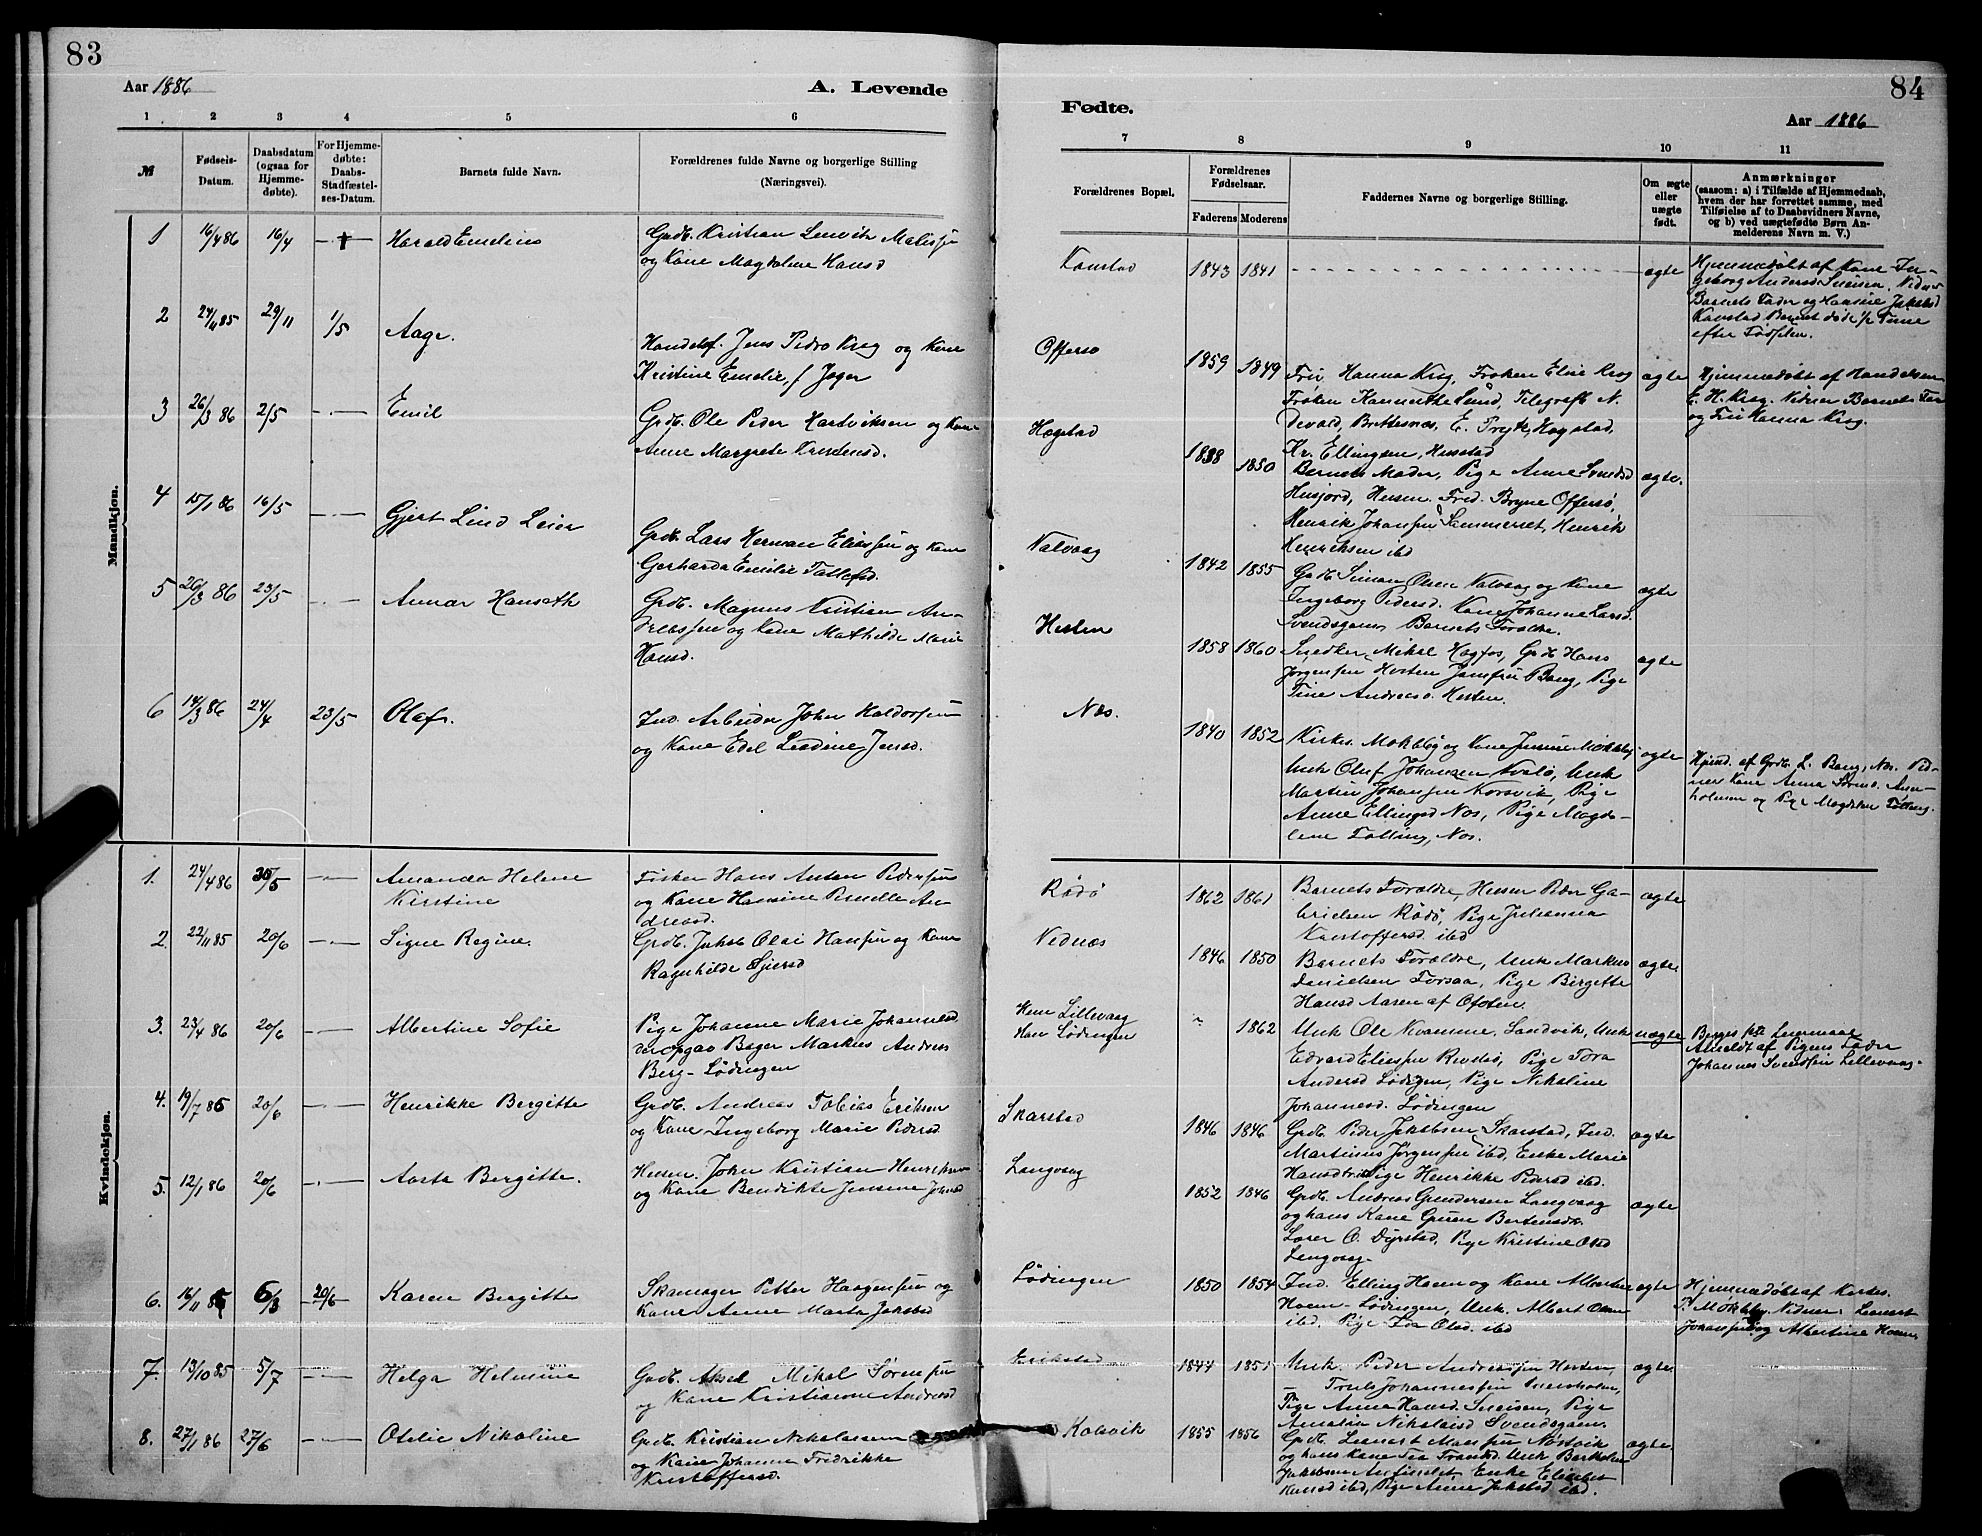 83
84
Aar 1886
A. Levende
Fødte.
Aar 1886
1 2 3 4 5 6
7 8 9 10 11
№
Fødsels-
Datum.
Daabsdatum
(ogsaa for
Hjemme-
døbte).
For Hjemme-
døbte:
Daabs-
Stadfæstel-
ses-Datum.
Barnets fulde Navn.
Forældrenes fulde Navne og borgerlige Stilling
(Næringsvei).
Forældrenes Bopæl.
Forældrenes
Fødselsaar.
Faderens Moderens
Faddernes Navne og borgerlige Stilling.
Om ægte
eller
uægte
født.
Anmærkninger
(saasom: a) i Tilfælde af Hjemmedaab,
hvem der har forrettet samme, med
Tilføielse af to Daabsvidners Navne,
og b) ved uægtefødte Børn An-
melderens Navn m. V.)
Mandkjøn.
1 16/4 86 16/4 Harald Emelius
Grdb. Kristian Lenvik
og Kone Magdalene Hansd
Kanstad 1843 1841 ægte
Hjemmedøbt af Kone In-
geborg Andersd
Barnets Fader og Hansine Jakobsd
Kanstad Barnet døde 1/2 Time
efter Fødselen.
2 24/11 85 29/11 1/5 Aage.
Handelsf. Jens Pedro Krog og Kone
Kristine Emelie, f Jæger
Offersø 1859 1849
Fru Hanna Krog, Frøken Elise Krog
Frøken Lund, Telegrafb. N.
Devald, Brettesnæs, E. Hogstad,
Kr. Ellingsen,
ægte
Hjemmedøbt af Handelsm
E. H. Krog. Vidner Barnets Far
og Fru Hanna Krog.
3 26/3 86 2/5 Emil
Grdb. Ole Peder Hartviksen og Kone
Anne Margrete Kristensd.
Hogstad 1838 1850
Barnets Moder, Pige Anne Svendsd
Husjord, Husm. Fred. Bryne Offersø,
Henrik Johansen Sommerset, Henrik
Henriksen ibd
ægte.
4 15/1 86 16/5 Gjert Lind Leier
Grdb. Lars Herman Eliassen og Kone
Gerharda Emilie
Valvaag 1842 1855
Grdb. Simon Olsen Valvaag og Kone
Ingeborg Pedersd. Kone Johanne Larsd.
Svendsgam, Barnets Forældre.
ægte
5 20/3 86 23/5 Annar Hanseth
Grdb. Magnus Kristian An-
dreassen og Kone Mathilde Marie
Hansd.
Hesten 1858 1860
Snedker Mikal Hagfos, Grdb Hans
Jørgensen Hesten Bang, Pige
Tine Andreasd. Hesten.
ægte
6 14/3 86 24/4 23/5 Olaf.
Ind. Arbeider John Haldorsen
og Kone Edel Leadine Jensd.
Næs. 1840 1852
Kirkes. Mokkelb og Kone
Unk Oluf Johansen Kvalø, Unk
Martin Johansen Korsvik, Pige
Anne Ellingsd Næs, Pige Magda-
lene Tolling, Næs.
ægte
Hjemd. af Grdb. L. Bang, Næs. Vid-
ner Kone Anna
holmen og Pige Magdalen Tolling.
Kvindekjøn.
1. 24/4 86 30/5 Amanda Helene
Kirstine
Fisker Hans Anton Pedersen
og Kone Hansine Pernelle An-
dreasd.
Rødø 1862 1861
Barnets Forældre, Husm Peder Ga-
brielsen Rødø, Pige Julianna
Kristoffersd. ibd
ægte
2. 22/11 85 20/6 Signe Regine.
Grdb. Jakob Olai Hansen og Kone
Ragnhilde Sjursd
Vidnæs 1846 1850
Barnets Forældre, Unk Markus
Danielsen Forsaa, Pige Birgitte
Hansd Aaren af Ofoten.
ægte
3. 23/4 86 20/6 Albertine Sofie
Pige Johanne Marie Johannesd
der opgav Bager Markus Andreas
Berg - Lødingen
Hun Lillevaag
Han Lødingen 1862
Unk Ole Kvamme, Sandvik, Unk
Edvard Eliassen Pige Tora
Andersd Lødingen, Pige Nikoline
Johannesd. Lødingen
uægte
Berges 1ste Leiermaal
Anmeldt af Pigens Fader
Johannes Svendsen Lillevaag.
4. 19/7 85 20/6 Henrikke Bergitte
Grdb. Andreas Tobias Eriksen
og Kone Ingeborg Marie Pedersd
Skarstad 1846 1846
Grdb. Peder Jakobsen Skarstad, Ind.
Martinus Jørgensen ibd, Enke Marie
Pige Henrikke Pedersd ibd.
ægte
5. 12/1 86 20/6 Aasta Bergitte.
Husm. John Kristian Henriksen
og Kone Bendikte Jensine Johnsd
Langvaag 1852 1846
Grdb. Andreas Gundersen Langvaag
og hans Kone Guren Bertensd.
Lærer O. Dyrstad, Pige Kristine Olsd
Langvaag.
ægte
6. 16/11 85 6/3 20/6 Karen Bergitte
Skomager Petter Haagensen og
Kone Anne Marta Jakobsd
Lødingen 1850 1854
Ind. Elling Hoem og Kone Albertine
Hoem - Lødingen, Unk. Albert Olsen
ibd. Pige Olsd. ibd
ægte
Hjemmedøbt af Kirkes.
P. Mokkelb. Vidner: Leonart
Johansen og Albertine Hoem
7. 13/10 85 5/7 Helga Helmine
Grdb. Aksel Mikal Sørensen
og Kone Kristianne Andersd
Erikstad 1844 1851
Unk. Peder Andreassen Hesten,
Truls Johannessen
Pige Anna Hansd. Pige
Amalia Nikolaisd Svendsgam.
ægte
8. 27/1 86 27/6 Otelie Nikoline
Grdb. Kristian Nikolaisen
og Kone Johanna Fredrikke
Kristoffersd.
Kalvik 1855 1856
Grdb. Leonart Hansen Nøsvik
og hans Kone Unk Bertheus
Jakobsen Enke Elisabet
Hansd ibd, Pige Anne Jakobsd ibd.
ægte